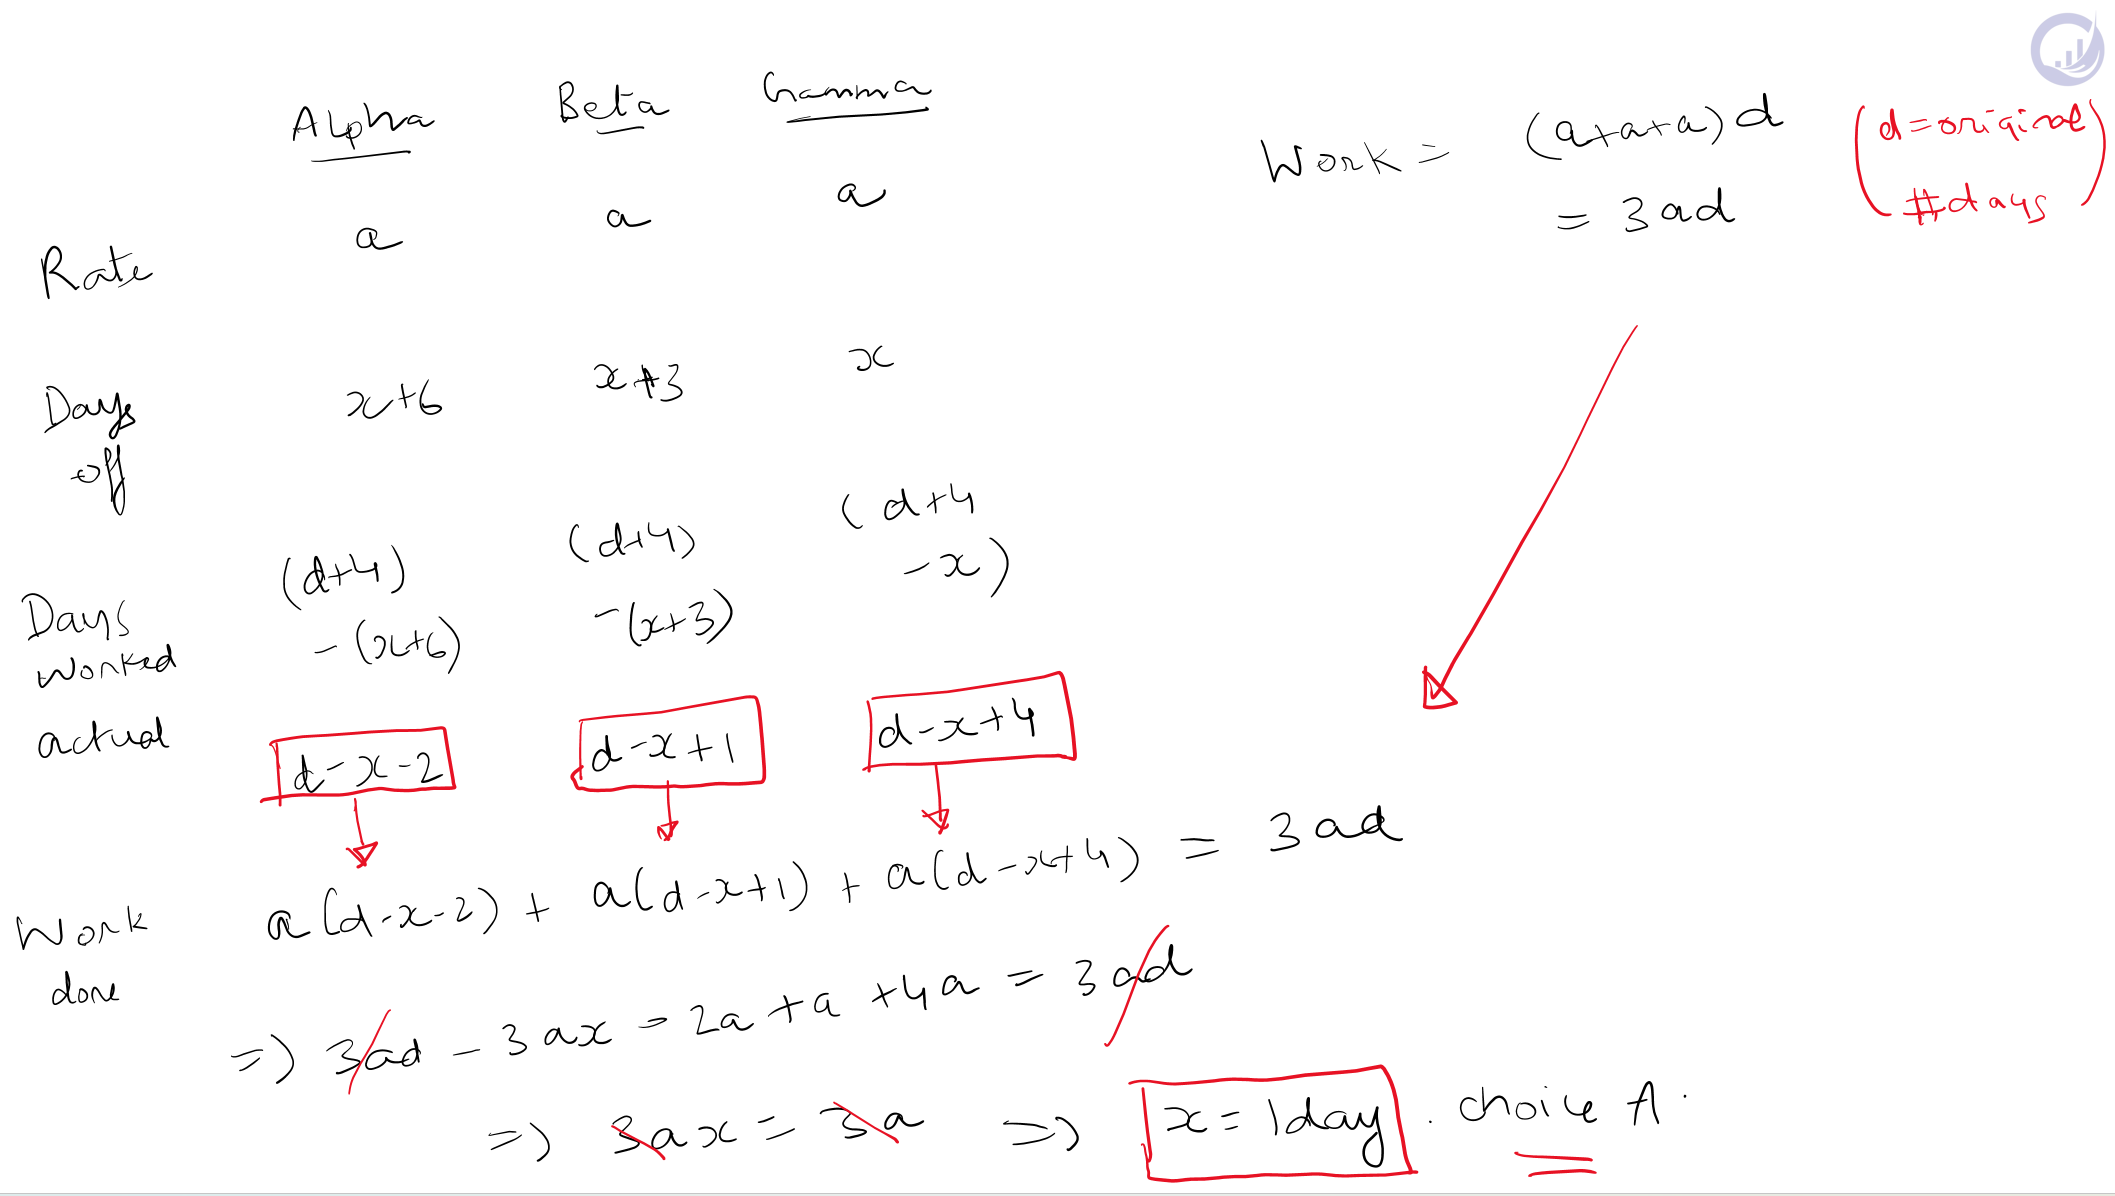 Alpha Beta Gamma
Rate a a a
Work = (a+a+a) d
= 3ad
(d = original
# days)
Days off x+6 x+3 x
Days worked actual (d+4) - (x+6) (d+4) - (x+3) (d+4 - x)
d-x-2 d-x+1 d-x+4
Work done a(d-x-2) + a(d-x+1) + a(d-x+4) = 3ad
=> 3ad - 3ax - 2a + a + 4a = 3ad
=> 3ax = 3a => x = 1day . choice A.